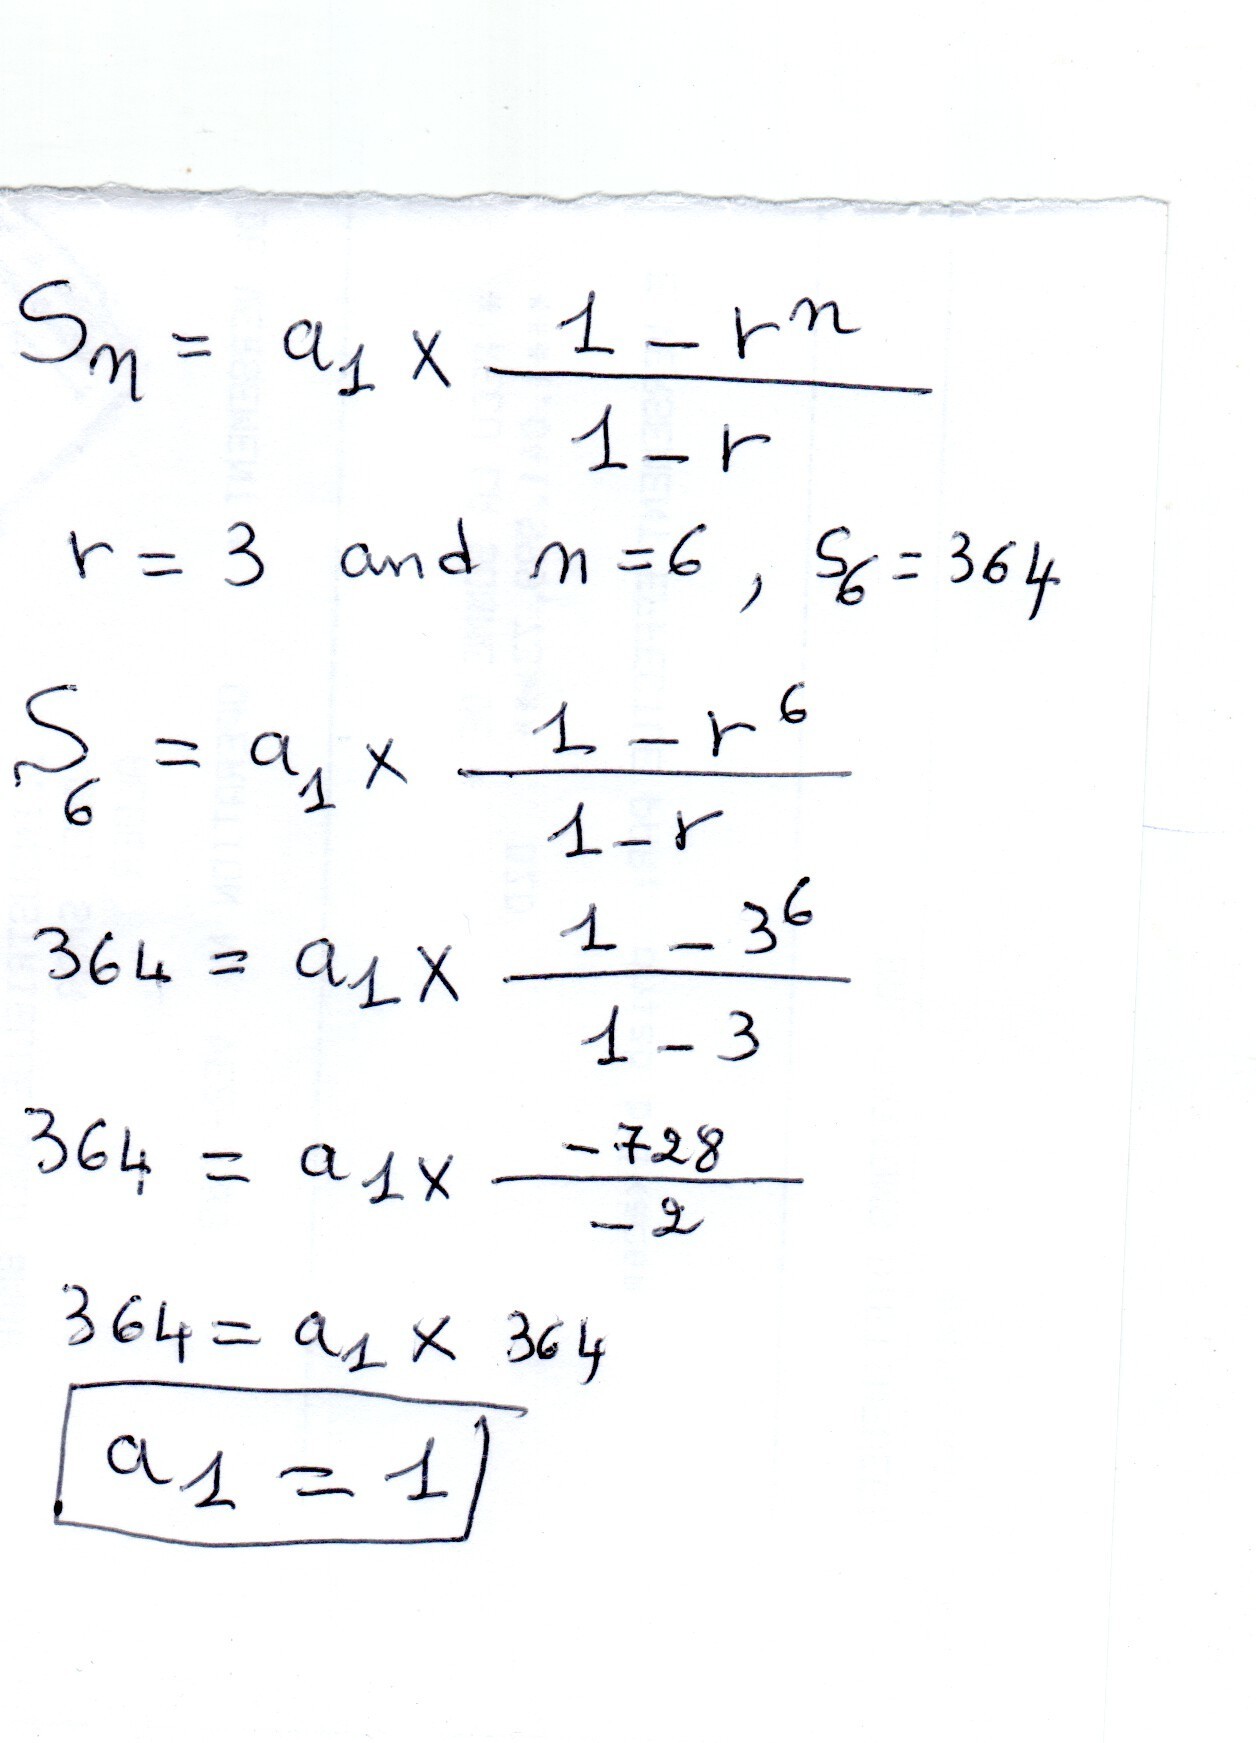 Sn = a1 × (1 - r^n) / (1 - r)
r = 3 and n = 6 , S6 = 364
S6 = a1 × (1 - r^6) / (1 - r)
364 = a1 × (1 - 3^6) / (1 - 3)
364 = a1 × (-728) / (-2)
364 = a1 × 364
a1 = 1